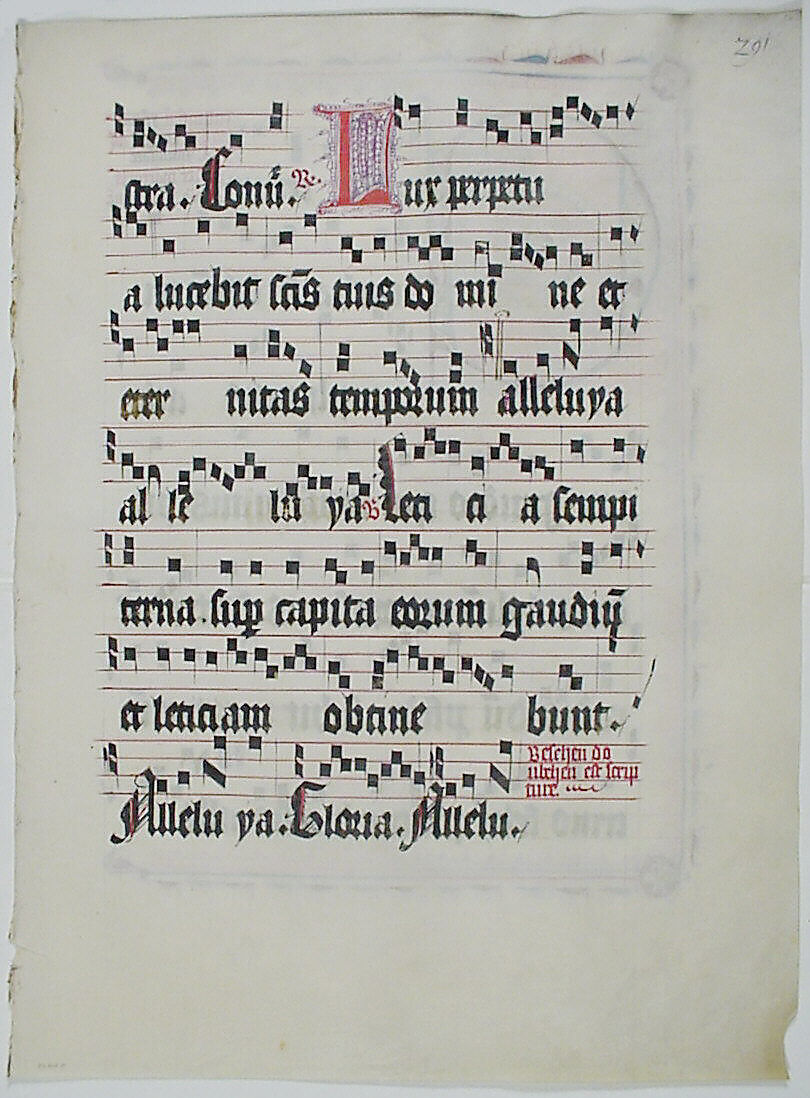 201
stra. Conũ. R. Lux perpetu
a lucebit scīs tuis do mi ne et
eter nitas temporum alleluya
al le lu ya V Leti ci a sempi
terna. sup capita eorum gaudiũ
et leticiam obtine bunt.
Allelu ya. Gloria. Allelu.
est scrip
ture.